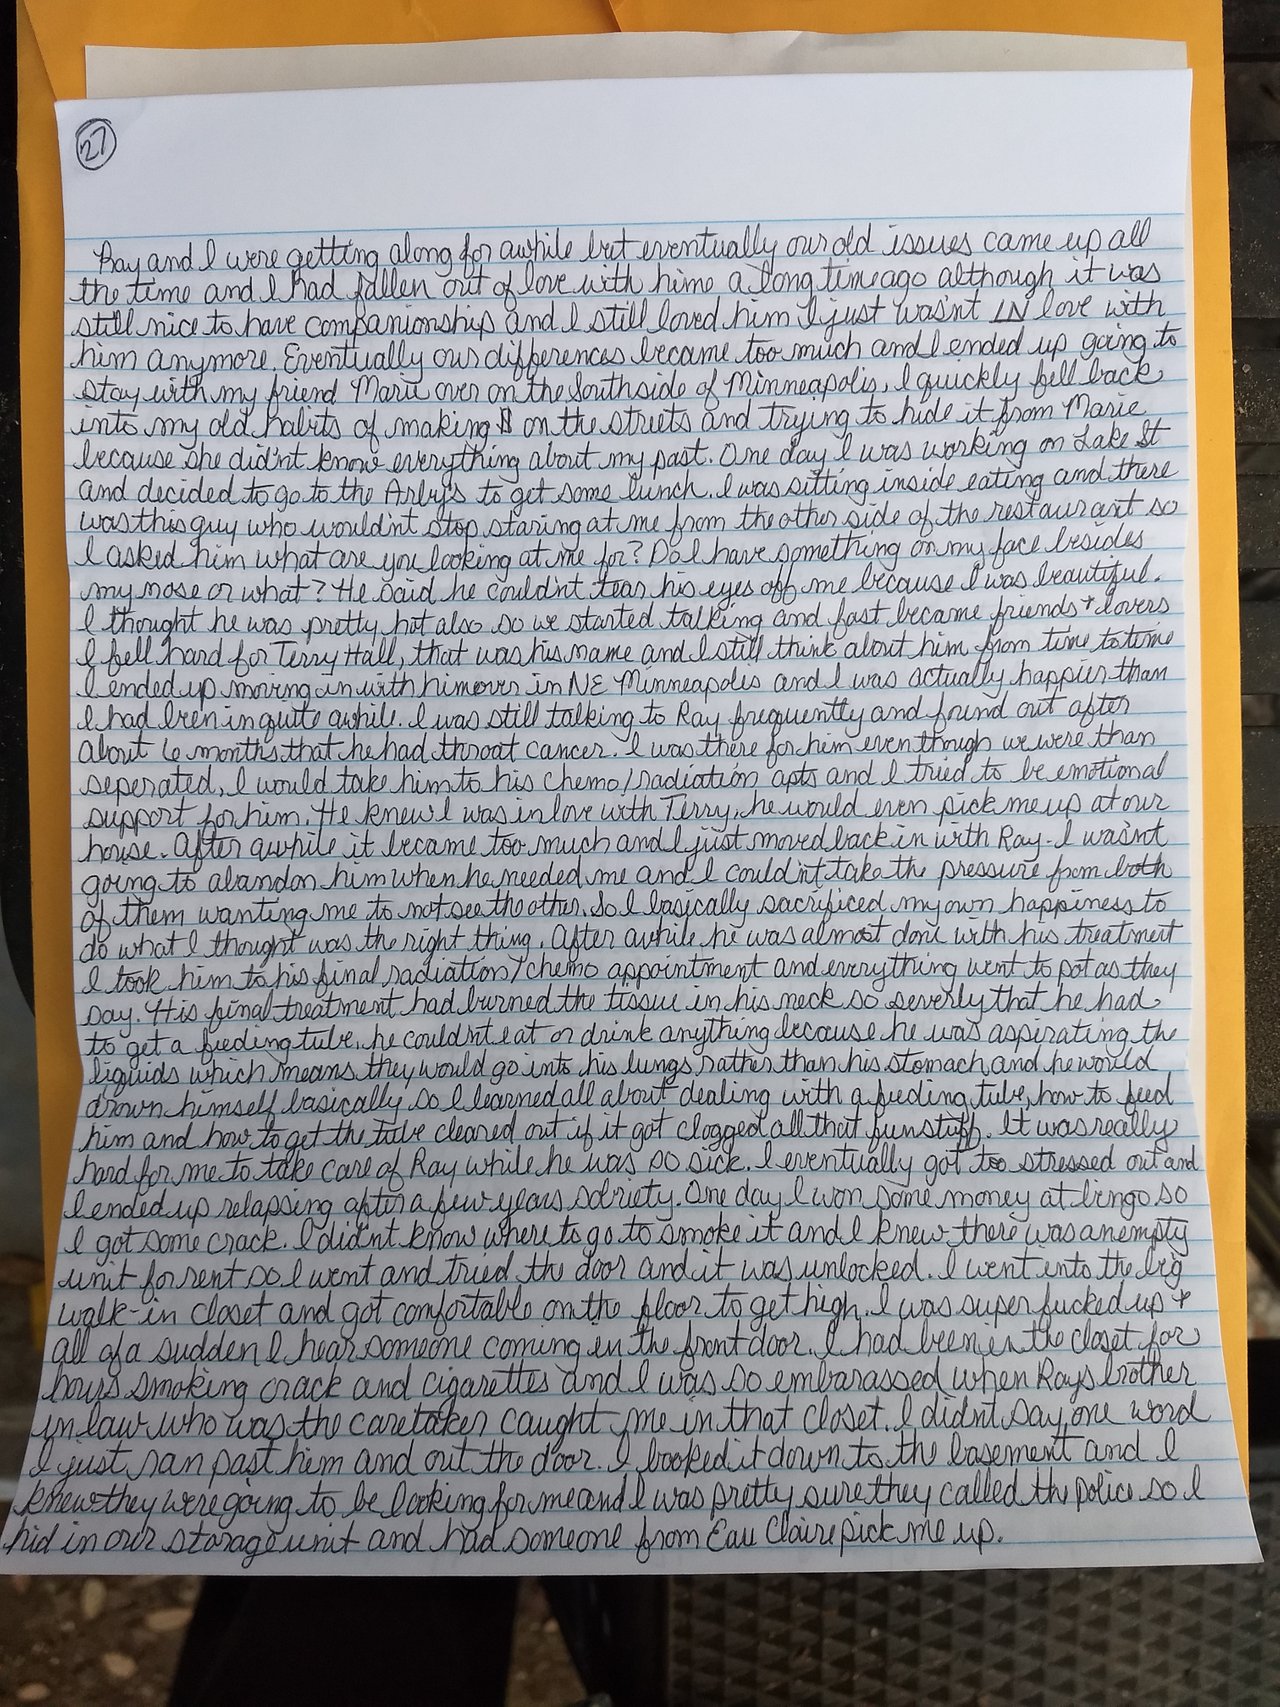 27
Ray and I were getting along for awhile but eventually our old issues came up all
the time and I had fallen out of love with hime a long time ago although it was
still nice to have companionship and I still loved him I just wasn't IN love with
him anymore. Eventually our differences became too much and I ended up going to
stay with my friend Marie over on the Southside of Minneapolis. I quickly fell back
into my old habits of making $ on the streets and trying to hide it from Marie
because she did'nt know everything about my past. One day I was working on Lake St
and decided to go to the Arby's to get some lunch. I was sitting inside eating and there
was this guy who would'nt stop staring at me from the other side of the restaurant so
I asked him what are you looking at me for? Do I have something on my face besides
my nose or what? He said he could'nt tear his eyes off me because I was beautiful.
I thought he was pretty hot also so we started talking and fast became friends + lovers
I fell hard for Terry Hall, that was his name and I still think about him from time to time
I ended up moving in with him over in NE Minneapolis and I was actually happier than
I had been in quite awhile. I was still talking to Ray frequently and found out after
about 6 months that he had throat cancer. I was there for him even though we were than
seperated, I would take him to his chemo/radiation apts and I tried to be emotional
support for him. He knew I was in love with Terry, he would even pick me up at our
house. After awhile it became too much and I just moved back in with Ray. I was'nt
going to abandon him when he needed me and I could'nt take the pressure from both
of them wanting me to not see the other. So I basically sacrificed my own happiness to
do what I thought was the right thing. After awhile he was almost done with his treatment
I took him to his final radiation/chemo appointment and everything went to pot as they
say. His final treatment had burned the tissue in his neck so severly that he had
to get a feeding tube, he could'nt eat or drink anything because he was aspirating the
liquids which means they would go into his lungs rather than his stomach and he would
drown himself basically so I learned all about dealing with a feeding tube, how to feed
him and how to get the tube cleared out if it got clogged all that fun stuff. It was really
hard for me to take care of Ray while he was so sick. I eventually got too stressed out and
I ended up relapsing after a few years sobriety. One day I won some money at bingo so
I got some crack. I did'nt know where to go to smoke it and I knew there was an empty
unit for rent so I went and tried the door and it was unlocked. I went into the big
walk-in closet and got comfortable on the floor to get high. I was super fucked up +
all of a sudden I hear someone coming in the front door. I had been in the closet for
hours smoking crack and cigarettes and I was so embarassed when Rays brother
in law who was the caretaker caught me in that closet. I did'nt say one word
I just ran past him and out the door. I booked it down to the basement and I
knew they were going to be looking for me and I was pretty sure they called the police so I
hid in our storage unit and had someone from Eau Claire pick me up.